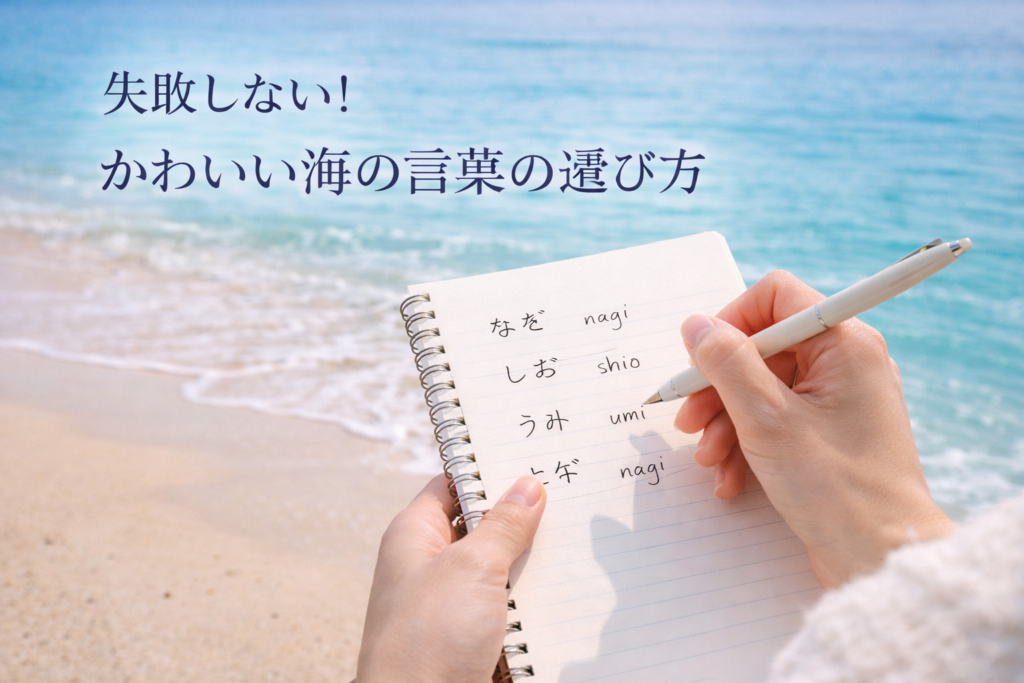 失敗しない!
かわいい海の言葉の選び方
なぎ nagi
しお shio
うみ umi
nagi